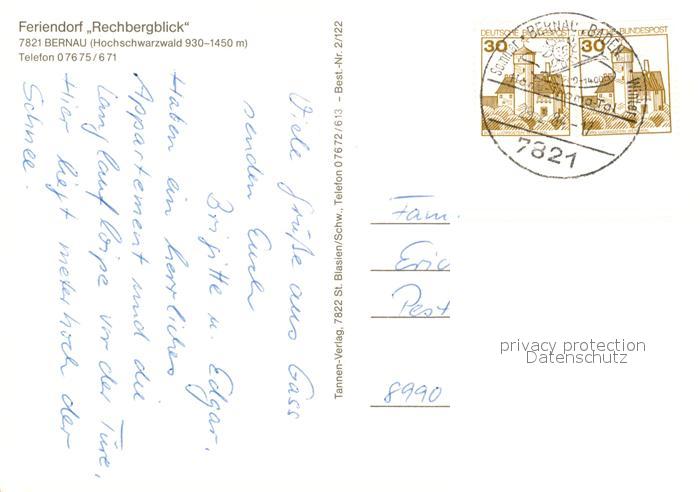 Feriendorf „Rechbergblick"
7821 BERNAU (Hochschwarzwald 930–1450 m)
Telefon 07675/671
Viele Grüße aus Gass
senden Euch
Brigitte u. Edgar.
Haben ein herrliches
Appartement und die
Langlaufloipe vor der Türe.
Hier liegt meterhoch der
Schnee.
Tannen-Verlag, 7822 St. Blasien/Schw., Telefon 07672/613 – Best.-Nr. 2/122
DEUTSCHE BUNDESPOST
30
30
BERNAU BADEN
Winter
7821
Fam.
Eric
Pest
8990
privacy protection
Datenschutz